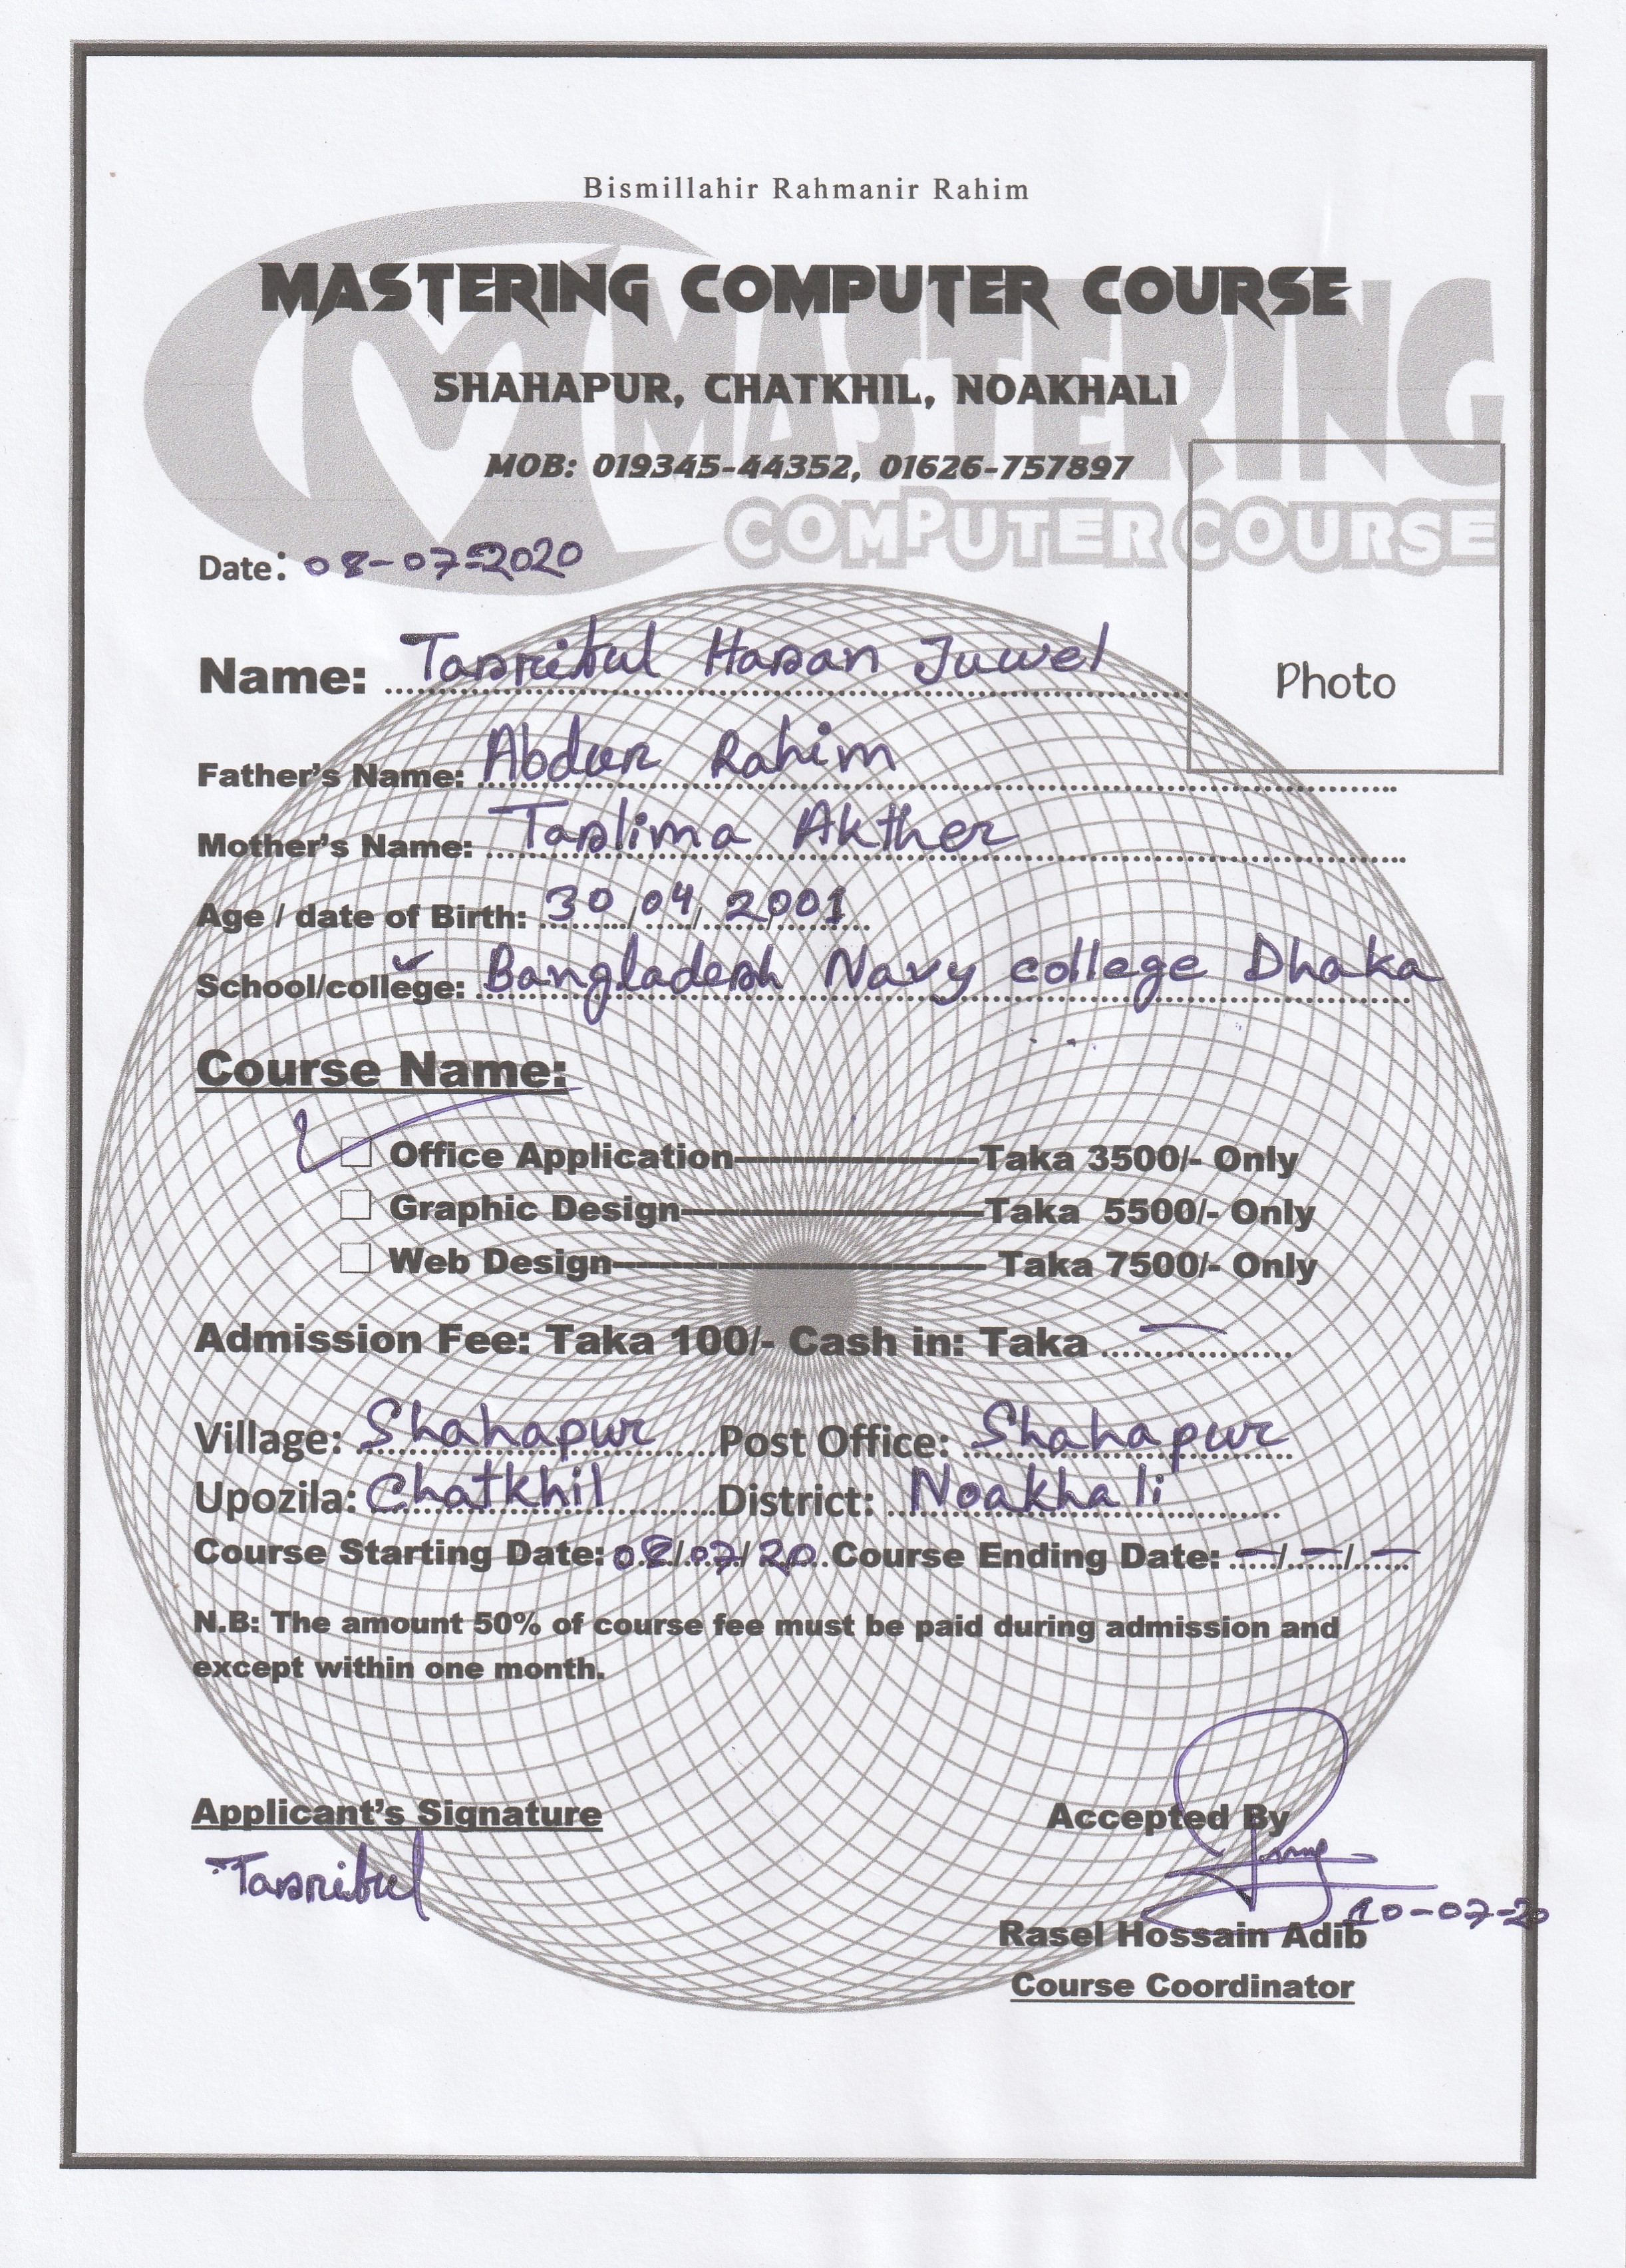 Bismillahir Rahmanir Rahim
MASTERING COMPUTER COURSE
SHAHAPUR, CHATKHIL, NOAKHALI
MOB: 019345-44352, 01626-757897
MASTERING
COMPUTER COURSE
Date: 08-07-2020
Name: Tasribul Hasan Juwel
Photo
Father's Name: Abdur Rahim
Mother's Name: Taslima Akther
Age / date of Birth: 30/04/2001
School/college: Bangladesh Navy college Dhaka
Course Name:
Office Application Taka 3500/- Only
Graphic Design Taka 5500/- Only
Web Design Taka 7500/- Only
Admission Fee: Taka 100/- Cash in: Taka —
Village: Shahapur Post Office: Shahapur
Upozila: Chatkhil District: Noakhali
Course Starting Date: 08/07/20 Course Ending Date: —/—/—
N.B: The amount 50% of course fee must be paid during admission and
except within one month.
Applicant's Signature Accepted By
Tasribul
10-07-20
Rasel Hossain Adib
Course Coordinator